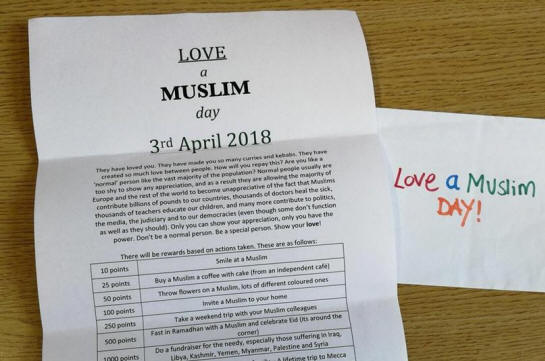 LOVE
a
MUSLIM
day
3rd April 2018
They have loved you. They have made you so many curries and kebabs. They have
created so much love between people. How will you repay this? Are you like a
'normal' person like the vast majority of the population? Normal people usually are
too shy to show any appreciation, and as a result they are allowing the majority of
Europe and the rest of the world to become unappreciative of the fact that Muslims
contribute billions of pounds to our countries, thousands of doctors heal the sick,
thousands of teachers educate our children, and many more contribute to politics,
the media, the judiciary and to our democracies (even though some don't function
as well as they should). Only you can show your appreciation, only you have the
power. Don't be a normal person. Be a special person. Show your love!
There will be rewards based on actions taken. These are as follows:
10 points Smile at a Muslim
25 points Buy a Muslim a coffee with cake (from an independent café)
50 points Throw flowers on a Muslim, lots of different coloured ones
100 points Invite a Muslim to your home
250 points Take a weekend trip with your Muslim colleagues
500 points Fast in Ramadhan with a Muslim and celebrate Eid (its around the
corner)
1000 points Do a fundraiser for the needy, especially those suffering in Iraq,
Libya, Kashmir, Yemen, Myanmar, Palestine and Syria
A lifetime trip to Mecca
Love a Muslim
DAY!